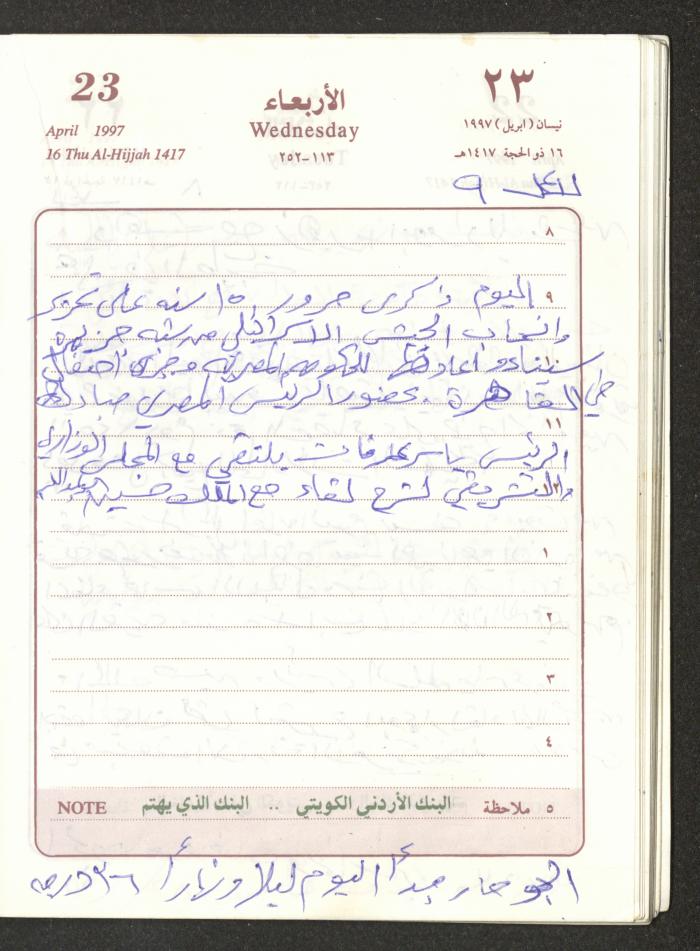 23
٢٣
April 1997
الأربعاء
نيسان (ابريل) ١٩٩٧
Wednesday
16 Thu Al-Hijjah 1417
١١٣-٢٥٢
١٦ ذو الحجة ١٤١٧هـ
٩
٨
٩ اليوم ذكرى مرور ١٥ سنه على تحرير
وانسحاب الجيش الاسرائيلي من شبه جزيرة
سيناء و اعادتها للحكومه المصريه وجرى احتفال
في القاهرة بحضور الرئيس المصري مبارك
١١
الرئيس ياسر عرفات يلتقي مع المجلس الوزاري
١٢ والتشريعي لشرح لقاء مع الملك حسين
١
٢
٣
٤
٥ ملاحظة البنك الأردني الكويتي .. البنك الذي يهتم NOTE
الجو حار جدأ اليوم ليلا ونهارأ ٣٦ درجه